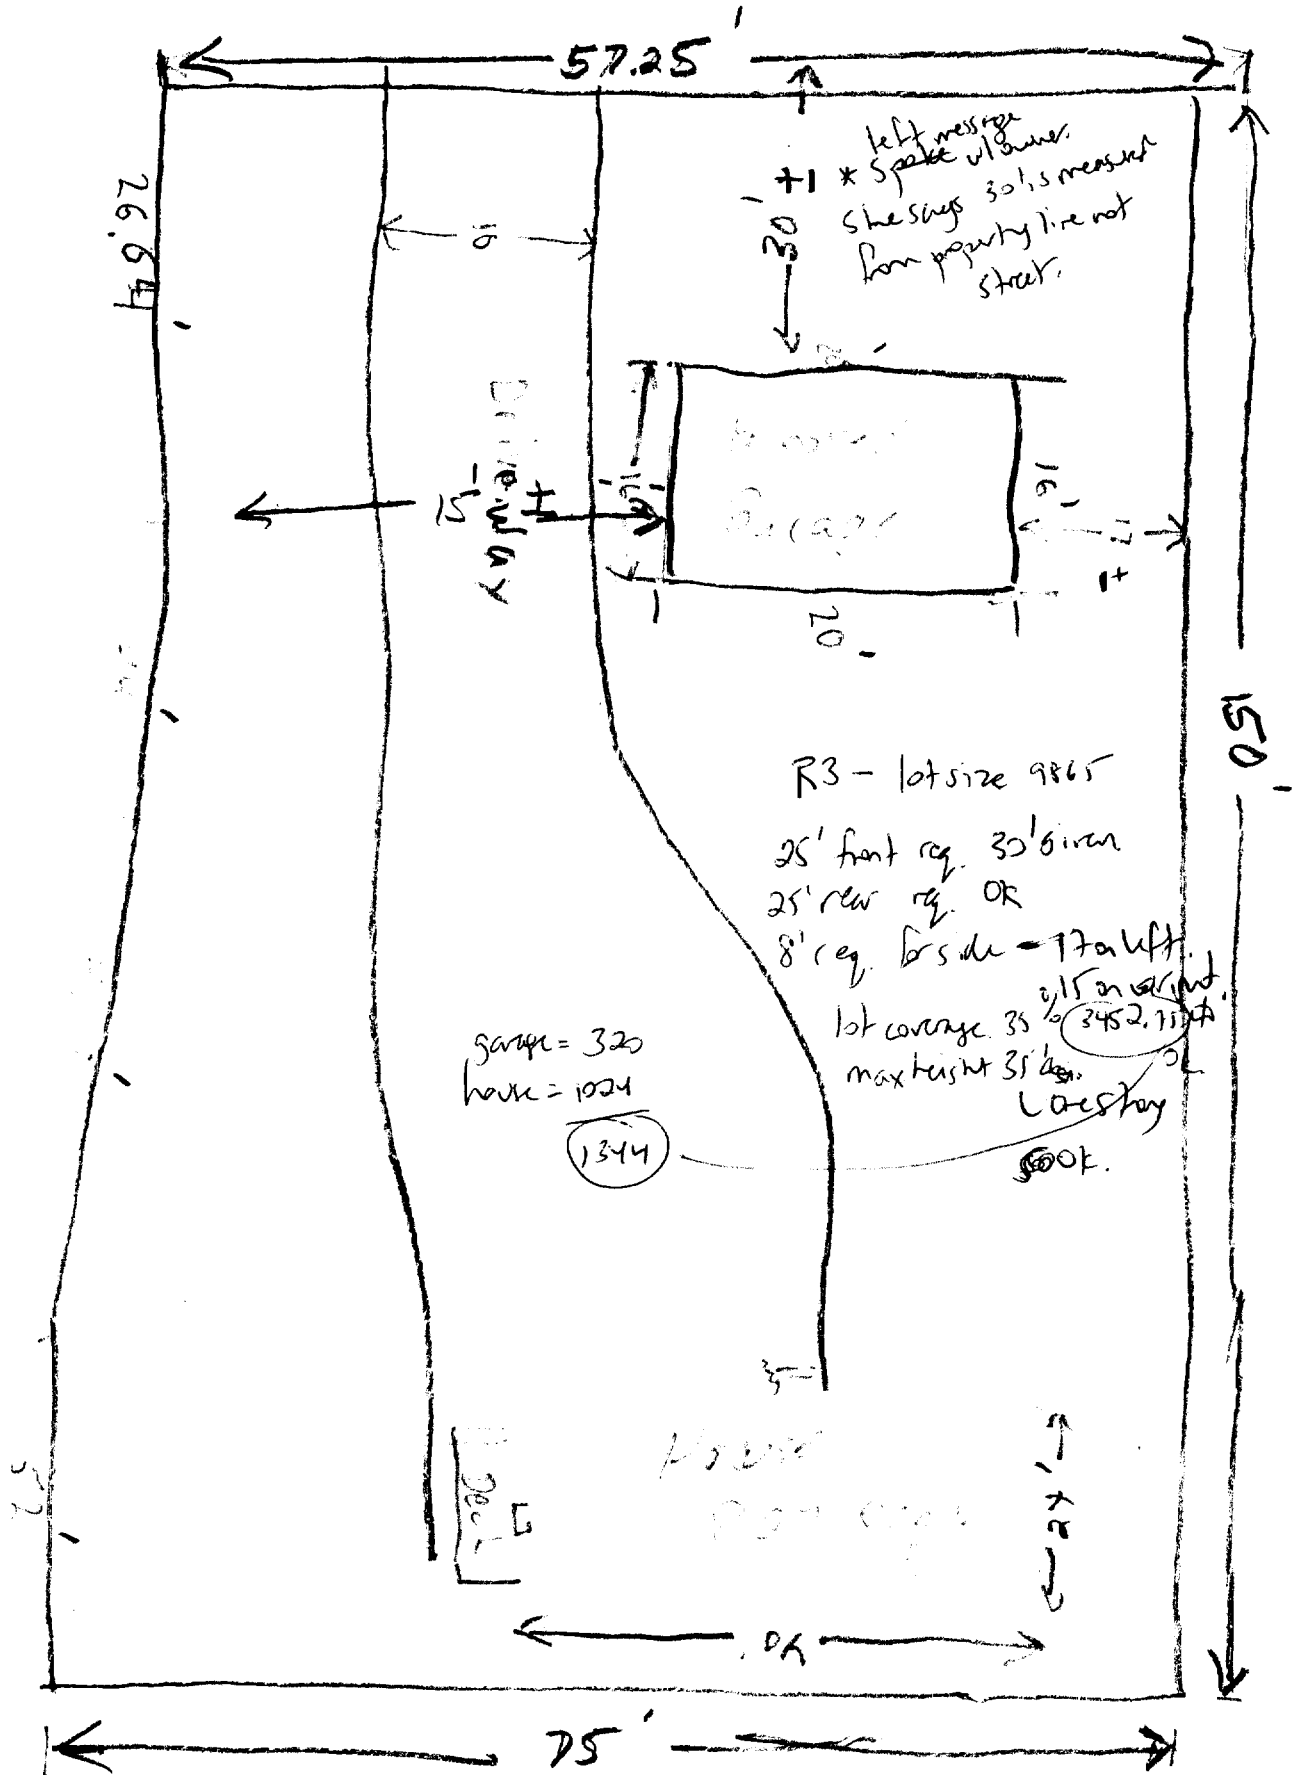 57.25'
left message
* Spoke w/ owner.
She says 30' is measured
from property line not
street.
30' +1
26.64'
16
16'
Driveway
15 ±
Garage
16'
17
1+
20'
150'
R3 - lot size 9865
25' front req. 30' given
25' rear req. OK
8' req. for side - 17 on left.
15 on right.
lot coverage 35% 3452.75
max height 35'
garage = 320
house = 1024
1344
1 one story
ok.
House
Deck
24'
52'
75'